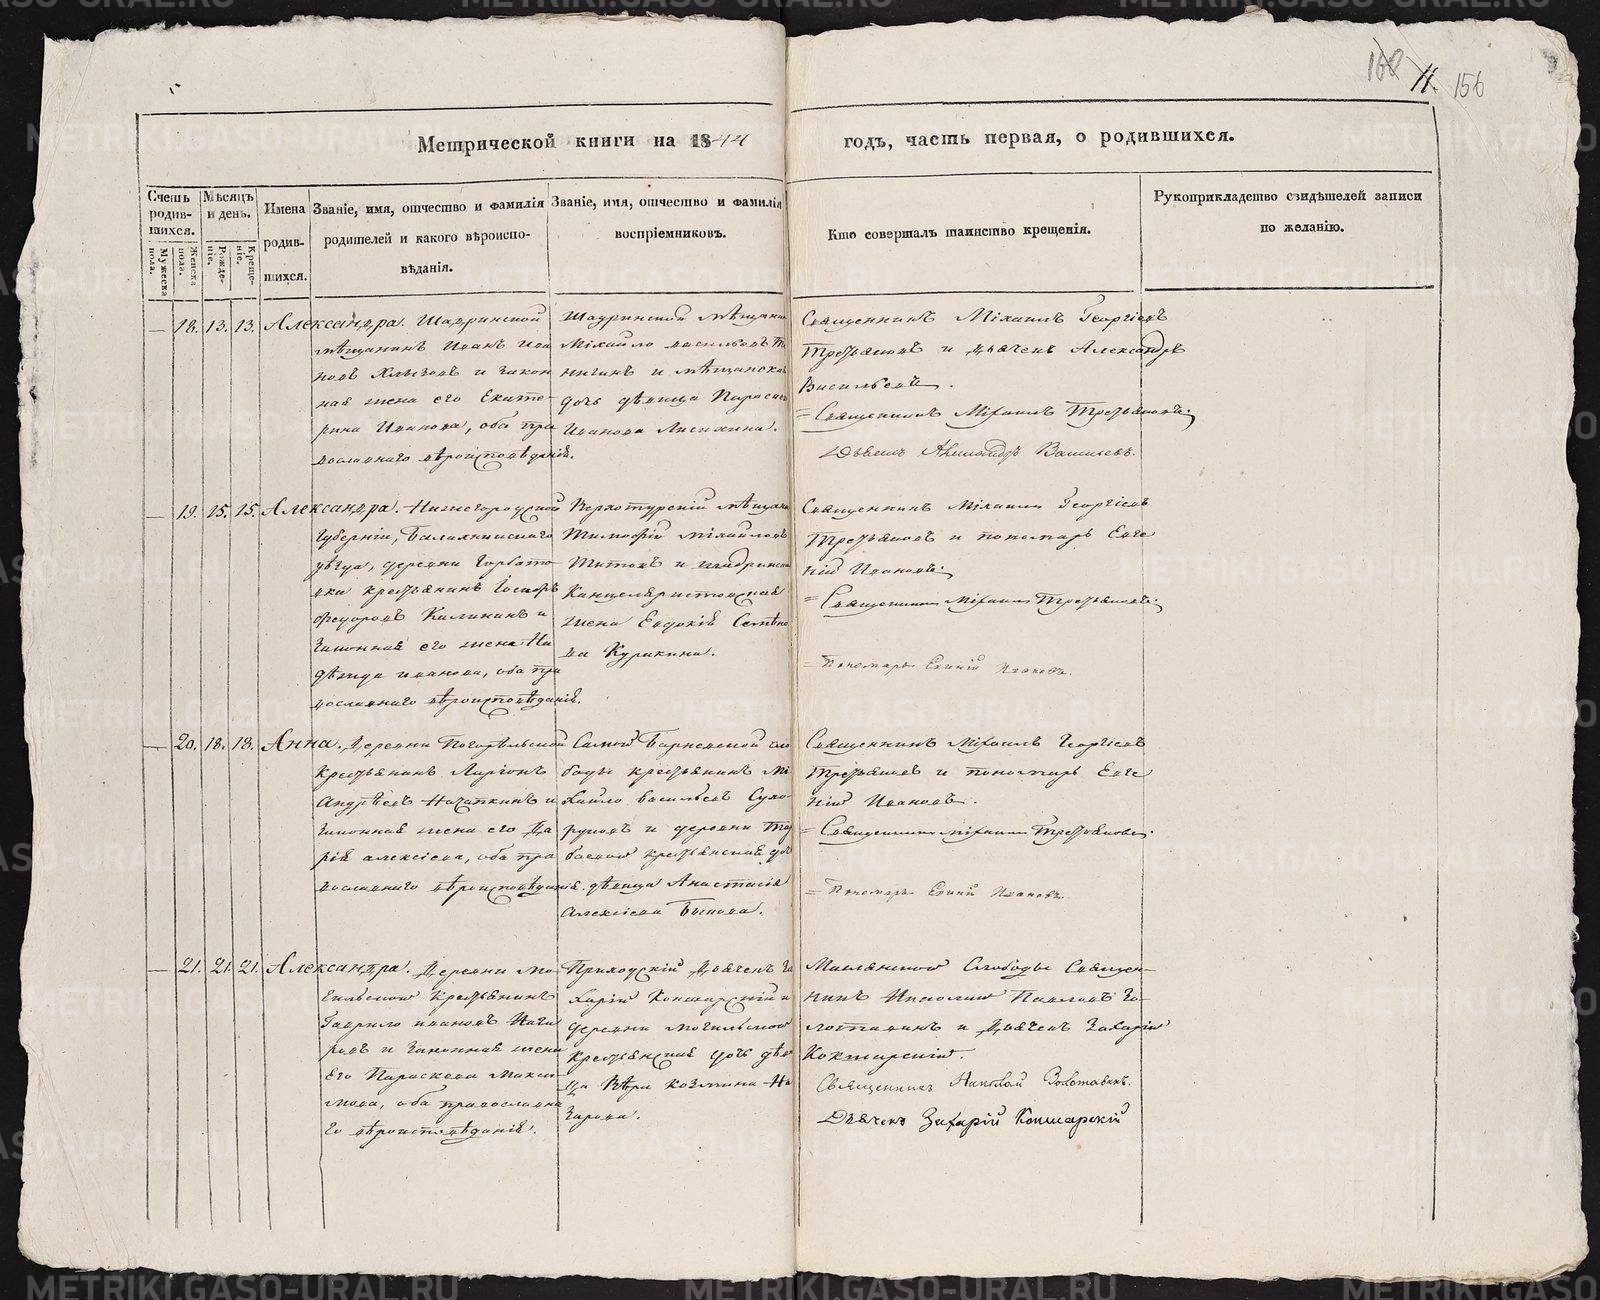 160 11. 156
Метрической книги на 1844 годъ, часть первая, о родившихся.
Счетъ родив-шихся.
Мужеска пола.
Женска пола.
Мѣсяцъ и день.
Рожде-ніе.
Креще-ніе.
Имена родив-шихся.
Званіе, имя, отчество и фамилія
родителей и какого вѣроиспо-
вѣданія.
Званіе, имя, отчество и фамилія
воспріемниковъ.
Кто совершалъ таинство крещенія.
Рукоприкладство свидѣтелей записи
по желанію.
— 18. 13. 13. Александра.
Шадринской
мѣщанинъ Иванъ Ива
новъ и закон
ная жена его Екате-
рина Иванова, оба пра
вославнаго вѣроисповѣданія.
Шадринской мѣщани
Михайло Васильевъ
и мѣщанска
дочь дѣвица
Иванова
Священникъ Михаилъ Георгіевъ
Третьяковъ и дьячекъ Александръ
Васильевъ.
= Священникъ Михаилъ Третьяковъ.
Дьячекъ Александръ Васильевъ.
— 19. 15. 15. Александра.
Нижегородской
Губерніи, Балахнинскаго
уѣзда, деревни Горбато
вка крестьянинъ
Федоровъ Калининъ и
законная его жена На
дѣжда Иванова, оба пра
вославнаго вѣроисповѣданія.
Верхотурскій мѣщани
Тимофѣй Михайловъ
Титовъ и шадринска
Канцеляристовская
жена Евдокія Семѣно
ва Курикина.
Священникъ Михаилъ Георгіевъ
Третьяковъ и пономарь Евге
ній Ивановъ.
= Священникъ Михаилъ Третьяковъ.
= Пономарь Евгній Ивановъ.
— 20. 18. 18. Анна.
Деревни Погорѣльской
крестьянинъ Ларіонъ
Андрѣевъ и
законная жена его Да
рія Алексіева, оба пра
вославнаго вѣроисповѣданія.
Самой Барневской сло
боды крестьянинъ Ми
хайло Васильевъ Сухо-
руковъ и деревни
крестьянская до
дѣвица Анастасія
Алексіева Быкова.
Священникъ Михаилъ Георгіевъ
Третьяковъ и пономарь Евге
ній Ивановъ.
= Священникъ Михаилъ Третьяковъ.
= Пономарь Евгній Ивановъ.
— 21. 21. 21. Александра.
Деревни Мо-
гильской крестьянинъ
Гаврило Ивановъ Наза
ровъ и законная жена
его Параскева Макси
мова, оба православна
го вѣроисповѣданія.
Приходскій дьячекъ За
харій Кокшарскій и
деревни Могильской
крестьянская дочь дѣв
ца Вѣра Козмина На
зарова.
Маслянской Слободы Священ-
никъ Николай Павловъ Зо-
лотавинъ и дьячекъ Захарій
Кокшарскій.
Священникъ Николай Золотавинъ.
Дьячекъ Захарій Кокшарскій
METRIKI.GASO-URAL.RU